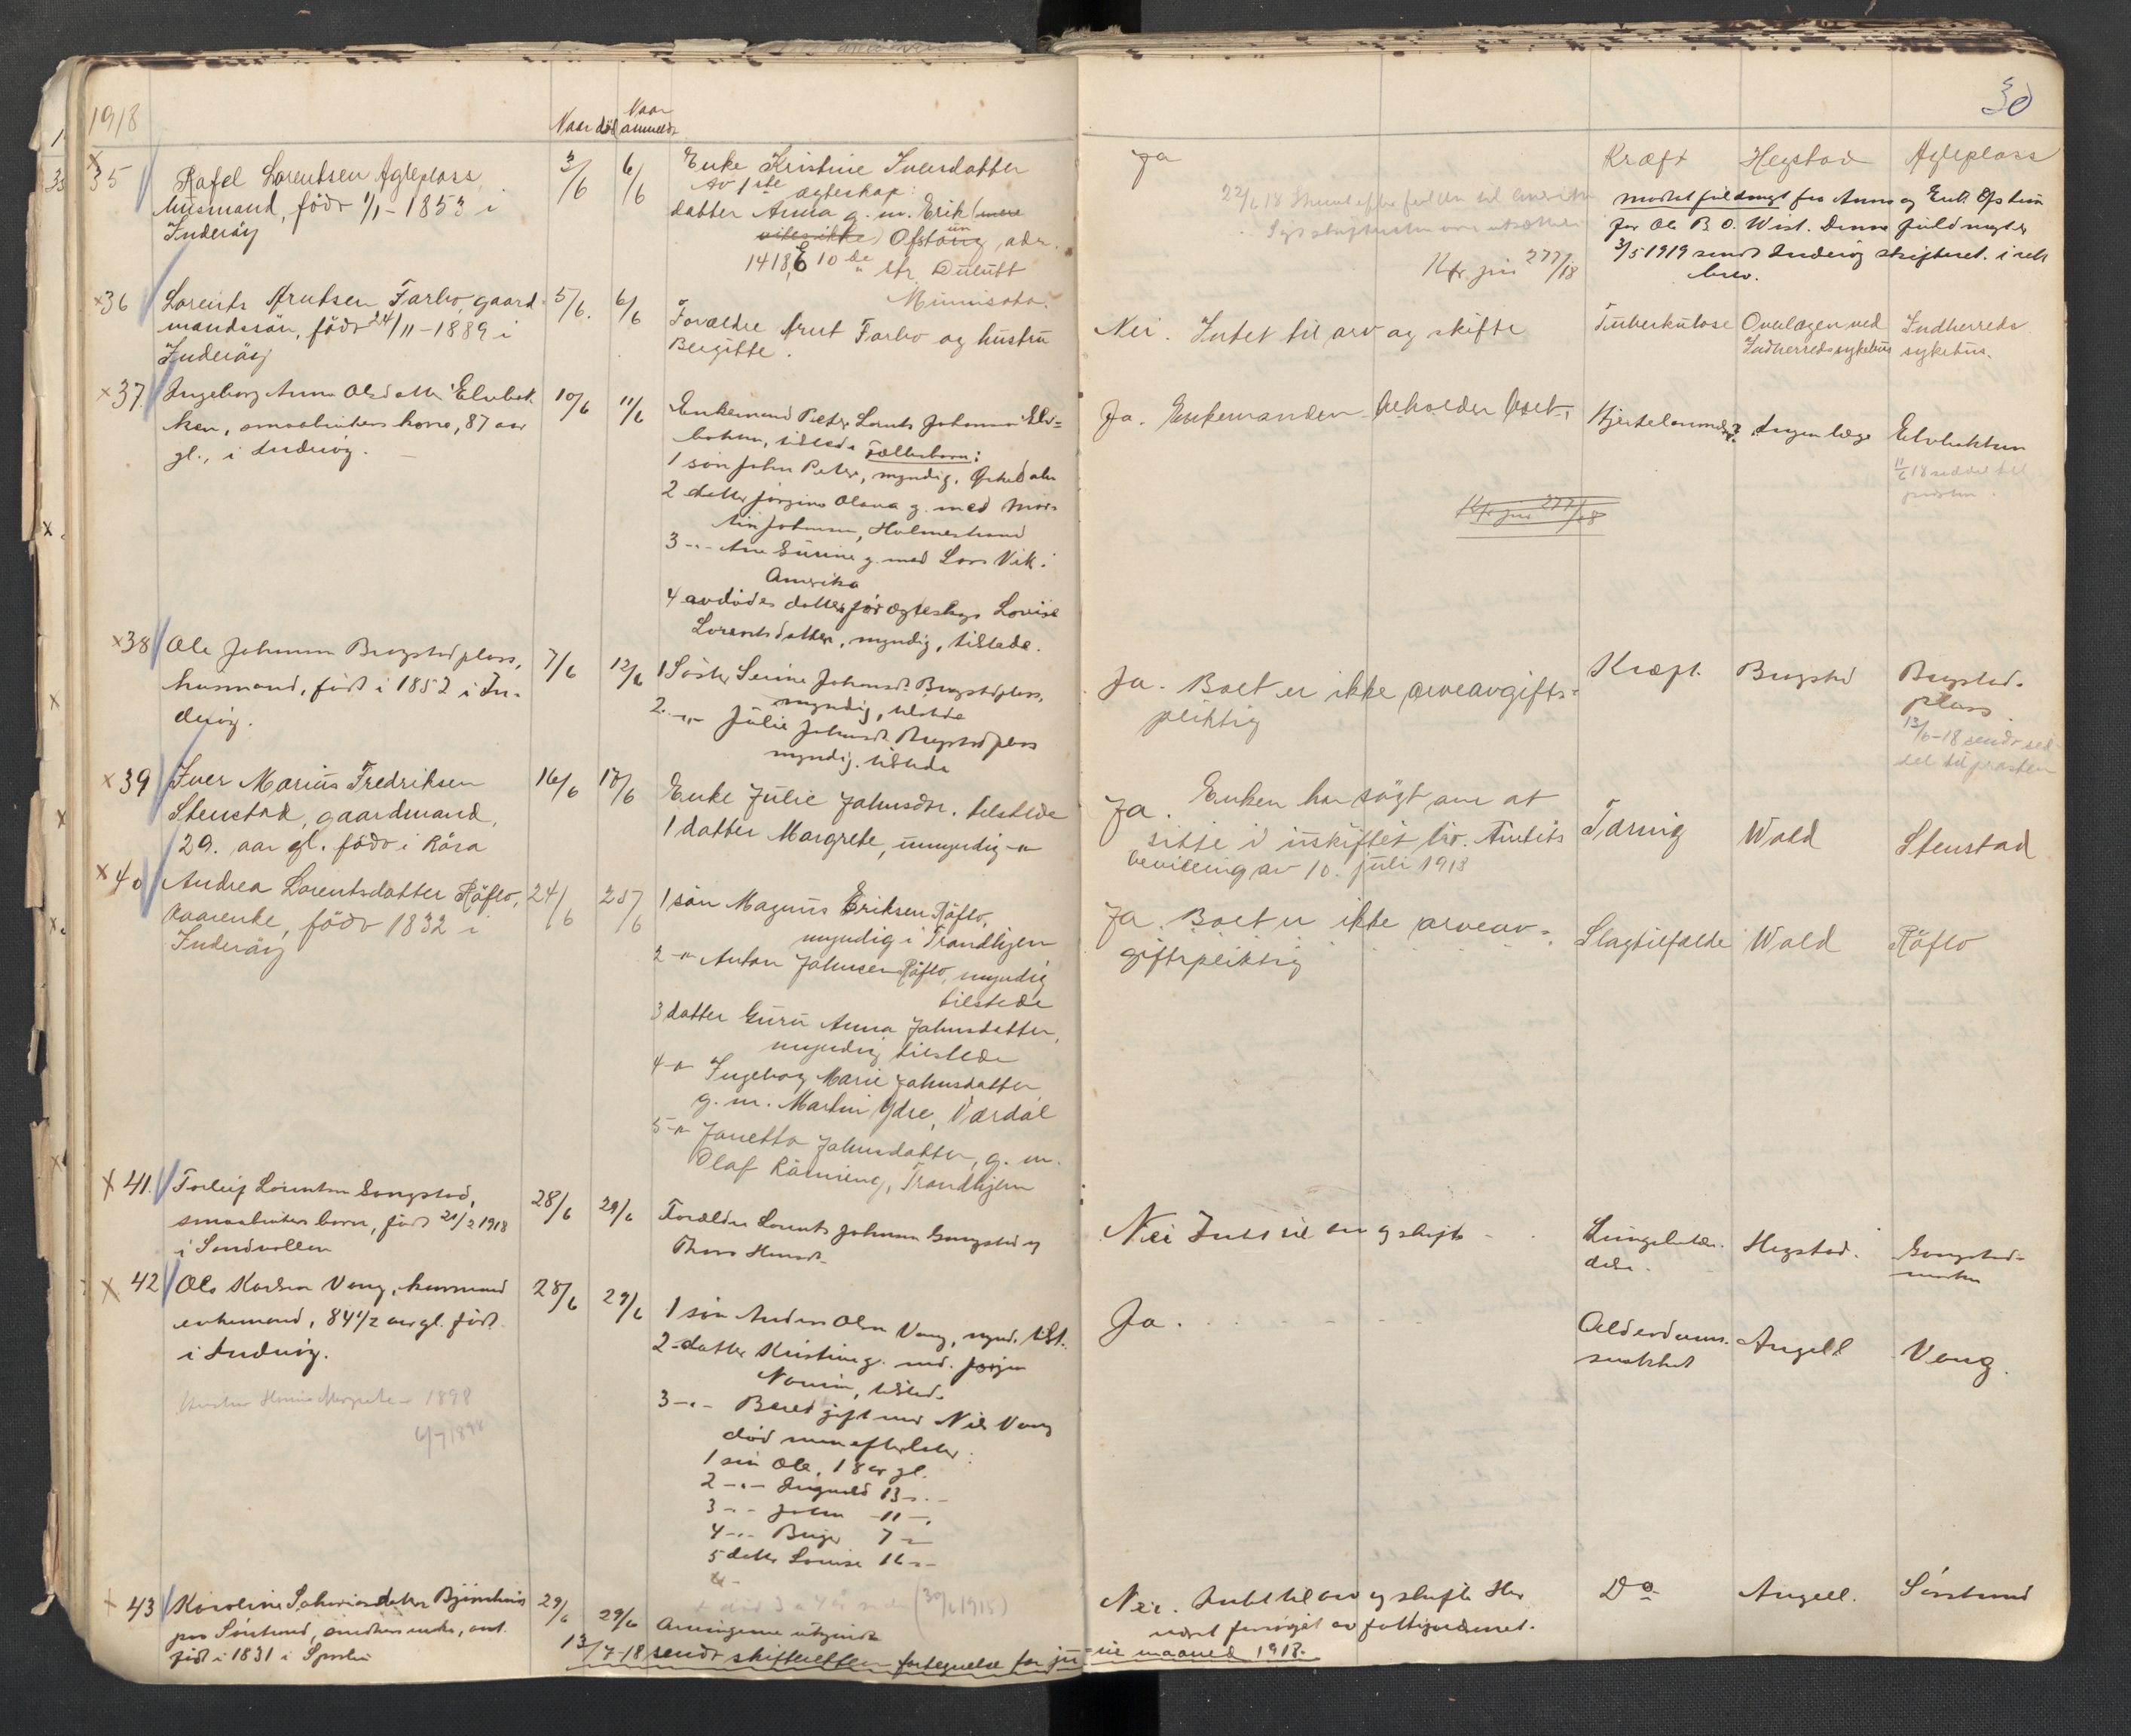 1918
30
Naar död
Naar anmeldt
x 35
Rafel Lorentsen Agleplass
husmand, född 1/1 - 1853 i
Inderöy
3/6
6/6
Enke Kristine Iversdatter
Av 1ste ægteskap:
datter Anna g. m. Erik (mere
vites ikke) Ofstaun adr.
1418, E 10 de Str. Dulutt
Minnisota.
Ja
22/6 18
Kfr jur 277/18
Kræft
Hegstad
Agleplass
mottet fuldmagt fra Anna og Erik Ofstun
for Ole B. O. Wist. Denne fuldmagt
3/5 1919 sendt Inderöy skifteret. i rek
brev.
x 36
Lorents Arntsen Farbo, gaard
mandssön, född 24/11 - 1889 i
Inderöy
5/6.
6/6
Forældre Arnt Farbo og hustru
Bergitte.
Nei. Intet til arv og skifte
Tuberkulose
Overlægen ved
Indherreds sykehus
Indherreds
sykehus.
x 37.
Ingeborg Anna Olsdatter Elvbak
ken, smaabrukers kone, 87 aar
gl., i Inderöy.
10/6
11/6
Enkemand Peter Lornts Johnsen Elv=
bakken, tilstede Fællesbarn:
1 sön John Peter, myndig, Orkedalen
2 datter Jörgine Olava g. med Mar-
tin Johnsen, Holmestrand
3 -"- Ane Gurine g. med Lars Vik i
Amerika
4 avdödes datter för ægteskap Lovise
Lorentsdatter, myndig, tilstede.
Ja. Enkemanden beholder boet.
Kfr jur 277/18
Hjertelammelse?
Ingen læge
Elvbakken
11/6 18 seddel til
presten.
x 38
Ole Johnsen Brugstadplass,
husmand, född i 1852 i In-
deröy.
7/6
12/6
1 Söster Serine Johnsdt. Brugstadplass,
myndig, tilstede
2 -"- Julie Johnsdt. Brugstadplass
myndig. tilstede
Ja. Boet er ikke arveavgifts=
pliktig
Kræft.
Brugstad
Brugstad-
plass.
13/6-18 sendt sed-
del til presten
x 39
Iver Marius Fredriksen
Stenstad, gaardmand,
29. aar gl. född i Röra
16/6
17/6
Enke Julie Johnsdtr. tilstede
1 datter Margrete, umyndig -"-
Ja. Enken har sögt om at
sitte i uskiftet bo. Amtets
bevilling av 10. juli 1918
Tæring
Wold
Stenstad
x 40
Andrea Lorentsdatter Röflo,
kaarenke, född 1832 i
Inderöy
24/6
25/6
1 sön Magnus Eriksen Röflo,
myndig i Trondhjem
2 -"- Anton Johnsen Röflo, myndig
tilstede
3 datter Guru Anna Johnsdatter,
myndig tilstede
4 -"- Ingeborg Marie Johnsdatter
g. m. Martin Ydse, Værdal
5 -"- Janetta Johnsdatter, g. m.
Olaf Röining, Trondhjem
Ja. Boet er ikke arveav=
giftspliktig
Slagtilfælde
Wold
Röflo
x 41.
Torleif Lorentsen Gangstad,
smaabrukers barn, född 21/2 1918
i Sandvollan
28/6
29/6
Forældre Lorents Johnsen Gangstad og
Thora Hansdt.
Nei Intet til arv og skifte
Lungebetæn-
delse.
Hegstad.
Gangstad-
x 42
Ole Karlsen Vang, husmand
enkemand, 84 1/2 aar gl. född
i Inderöy.
Hustru Hanna Margreta - 1898
6/7 1898
28/6
29/6
1 sön Anders Olsen Vang, mynd. tilst.
2 datter Kristine g. med Jörgen
tilstede
3 -"- Beret gift med Nils Vang
död men efterlater:
1 sön Ole, 18 aar gl.
2 -"- Ingvald 13 -"-
3 -"- John 11 -"-
4 -"- Birger 7 -"-
5 datter Lovise 16 -"-
+ död 3 a 4 år siden (30/6 1915)
Ja.
Alderdoms-
svakhet
Angell
Vang.
x 43
Karoline Sakariasdatter Björnhus
paa Sörstrand, enke, ant.
född i 1831 i Sparbu
29/6
29/6
Arvingerne ukjendt
Nei. Intet til arv og skifte Har
været forsörget av fattigvæsenet.
Do
Angell.
Sörstrand
13/7-18 sendt skifteretten fortegnelse for juni maaned 1918.